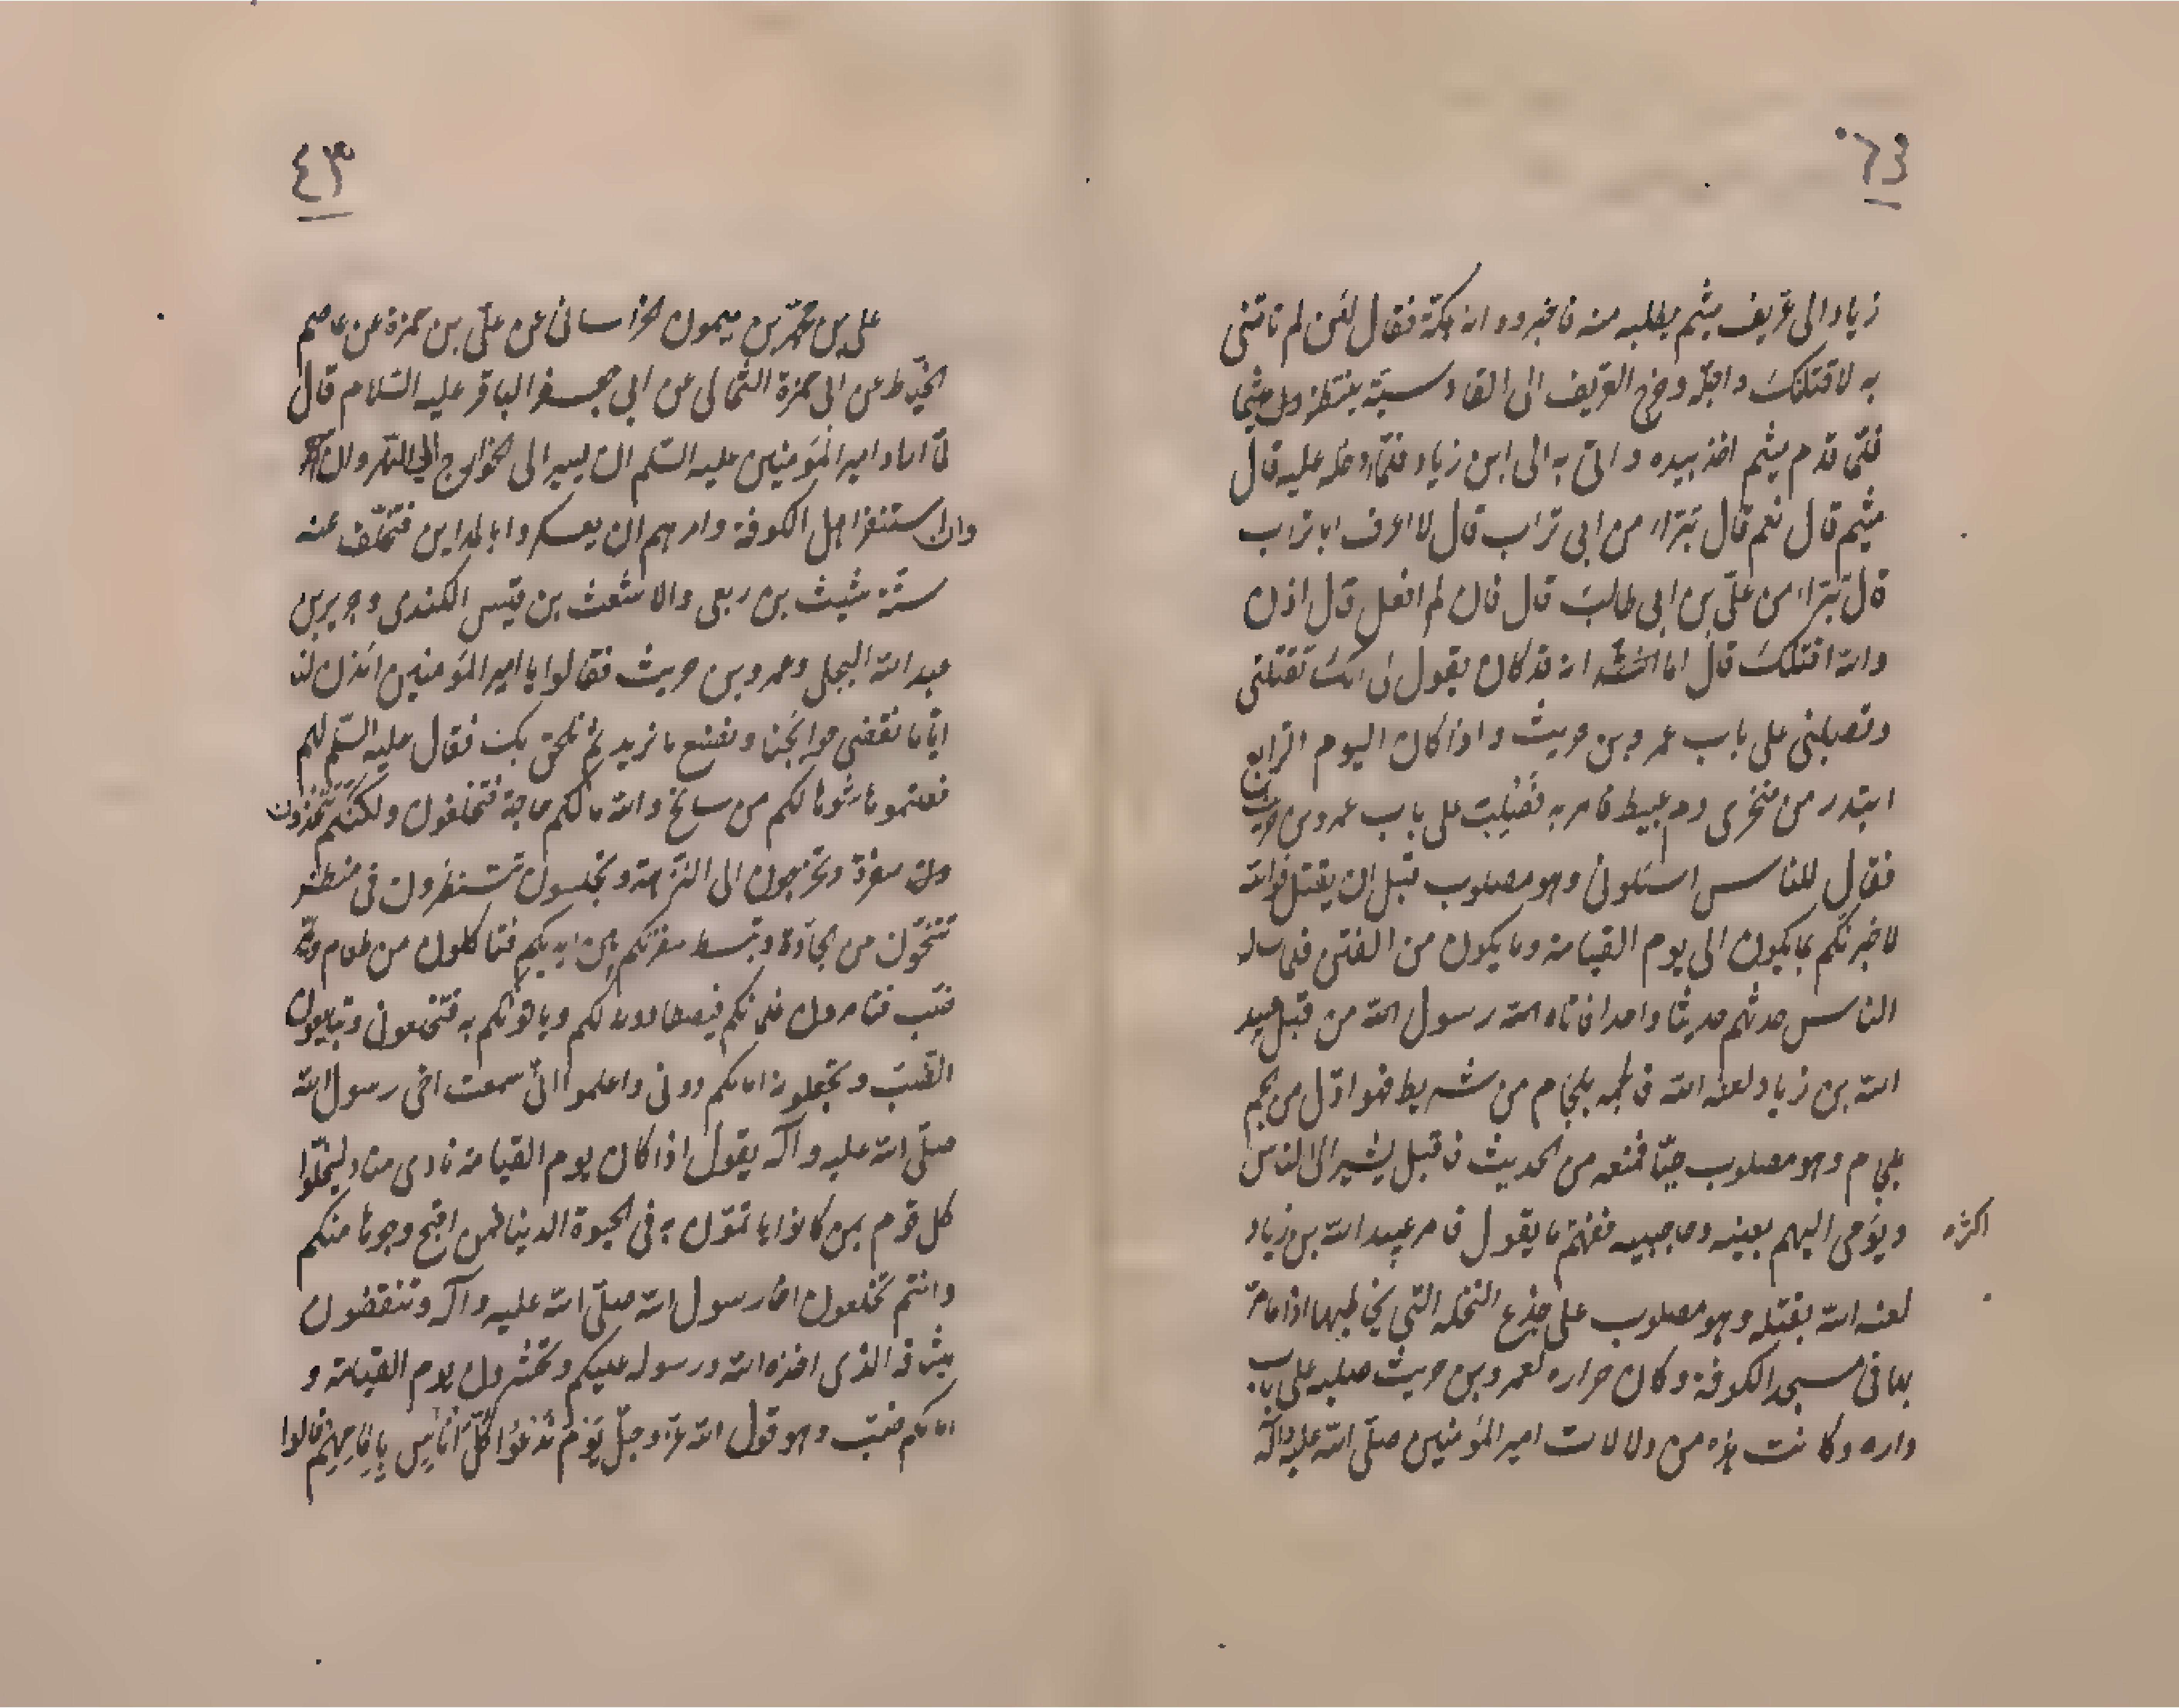 زياد الى عريف ميثم يطلبه منه فاخبره انه بمكة فقال لئن لم تاتنى
به لاقتلنك واجله وخرج العريف الى القادسية ينتظر ميثما
فلما قدم ميثم اخذ بيده واتى به الى ابن زياد فلما ادخله عليه قال
ميثم قال نعم قال تبرا من ابى تراب قال لا اعرف ابا تراب
قال تبرا من على بن ابى طالب قال فان لم افعل قال اذن
والله اقتلك قال اما انه قد كان يقول لى انك تقتلنى
وتصلبنى على باب عمرو بن حريث واذا كان اليوم الرابع
ابتدر من منخرى دم عبيط فامر به فصلب على باب عمرو بن حريث
فقال للناس اسئلونى وهو مصلوب قبل ان يقتل فوالله
لاخبرنكم بما يكون الى يوم القيامة وما يكون من الفتن فلما ساله
الناس حدثهم حديثا واحدا فاتاه الله رسول الله من قبل عبيد
الله بن زياد لعنه الله فالجمه بلجام من شريط فهو اول من الجم
بلجام وهو مصلوب حيا فمنعه من الحديث فاقبل يشير الى الناس
ويؤمى اليهم بعينه وحاجبيه ففهم ما يقول فامر عبيد الله بن زياد
اكثره
لعنه الله بقتله وهو مصلوب على جذع النخلة التى يخاطبها اذا مر
بها فى مسجد الكوفة وكان جواره لعمرو بن حريث صلبه على باب
داره وكانت هذه من دلالات امير المؤمنين صلى الله عليه وآله
٤٣
على بن محمد بن ميمون الخراسانى عن على بن حمزة عن عاصم
الخياط عن ابى حمزة الثمالى عن ابى جعفر الباقر عليه السلام قال
لما اراد امير المؤمنين عليه السلم ان يسير الى الخوارج الى النهروان
واستنفر اهل الكوفة وامرهم ان يعسكروا بالمداين فتخلف عنه
ستة شبث بن ربعى والاشعث بن قيس الكندى وجرير بن
عبد الله البجلى وعمرو بن حريث فقالوا يا امير المؤمنين ائذن لنا
اياما نقضى حوائجنا ونصنع ما نريد ثم نلحق بك فقال عليه السلم لهم
فعلتموها شوها لكم من سايخ والله ما لكم حاجة فتخلفون ولكنكم تتخذون
سفرة وتخرجون الى النزهة وتجلسون تنتظرون فى منظر
تتنحون من الجادة وتبسط سفرتكم بين ايديكم فتاكلون من طعام ويمر
ضب فتامرون غلمانكم فيصطادونه لكم وياتونكم به فتخلعونى وتبايعون
الضب وتجعلونه امامكم دونى واعلموا انى سمعت اخى رسول الله
صلى الله عليه وآله يقول اذا كان يوم القيامة نادى مناد ليخلوا
كل قوم بمن كانوا ياتمون به فى الحيوة الدنيا فمن اقبح وجوها منكم
وانتم تخلعون اخا رسول الله صلى الله عليه وآله وتنقضون
ميثاقه الذى اخذه الله ورسوله عليكم وتحشرون يوم القيامة و
امامكم ضب وهو قول الله عز وجل يوم ندعوا كل اناس بامامهم فقالوا